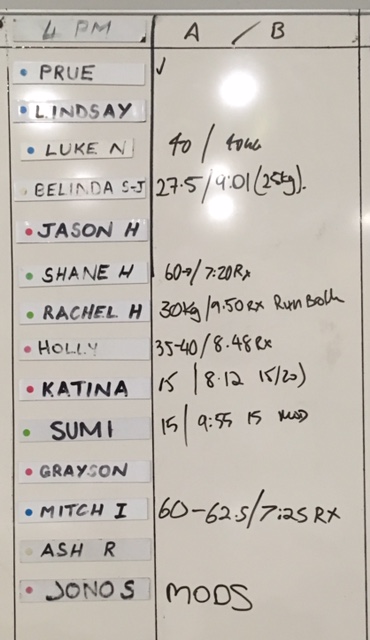 4 PM A / B
PRUE ✓
LINDSAY
LUKE N 40 / 40kg
BELINDA S-J 27.5/9:01 (25kg).
JASON H
SHANE H 60→/7:20 Rx
RACHEL H 30kg/9.50 RX Run Both
HOLLY 35-40/8.48 Rx
KATINA 15 / 8.12 15/20)
SUMI 15/ 9:55 15 MOD
GRAYSON
MITCH I 60-62.5/7:25 RX
ASH R
JONO S MODS